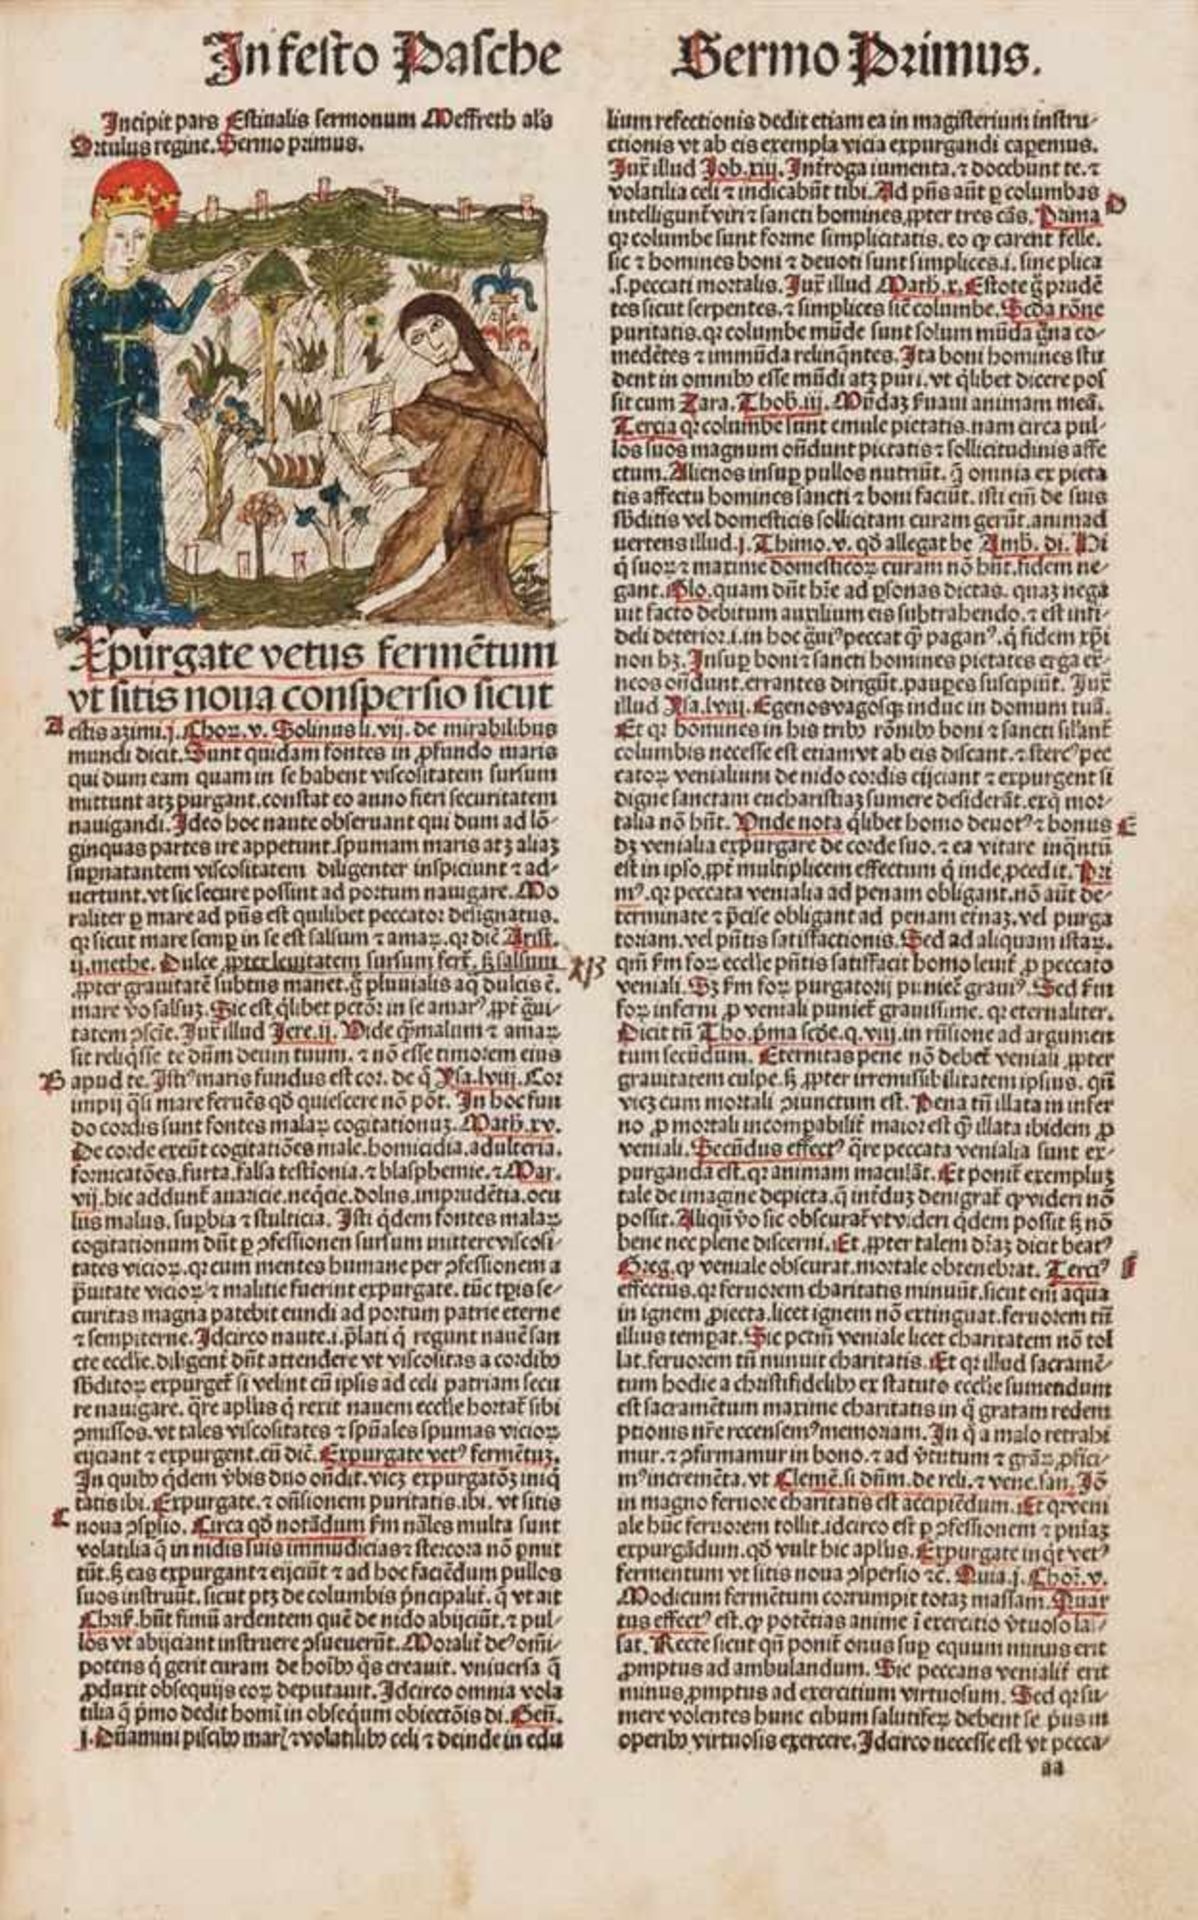 In festo Pasche Sermo Primus.
Incipit pars Estiualis sermonum Meffreth al's
Ortulus regine. Sermo primus.
Expurgate vetus fermẽtum
vt sitis noua conspersio sicut
A
estis azimi. j. Choꝝ. v. Solinus li. vij. de mirabilibus
mundi dicit. Sunt quidam fontes in ꝓfundo maris
qui dum eam quam in se habent viscositatem sursum
mittunt atꝫ purgant. constat eo anno fieri securitatem
nauigandi. Ideo hoc naute obseruant qui dum ad lõ-
ginquas partes ire appetunt. spumam maris atꝫ aliaꝫ
supnatantem viscositatem diligenter inspiciunt ⁊ ad-
uertunt. vt sic secure possint ad portum nauigare. Mo
raliter ꝑ mare ad pñs est quilibet peccator designatus.
qꝛ sicut mare semꝑ in se est salsum ⁊ amaꝝ. qꝛ dič Arist.
ij. methe. Dulce ꝓpter leuitatem sursum fert̃. sꝫ salsum
xiß
ꝓpter grauitatẽ subtus manet. g̃ pluuialis aq̃ dulcis ẽ.
mare ṽo salsuꝫ. Sic est q̃libet pctõr in se amarꝰ. ꝓpt̃ g̃ui-
tatem ↄscie. Iux̃ illud Jere. ij. Vide q̃ malum ⁊ amaꝝ
sit reliq̃sse te dñm deum tuum. ⁊ nõ esse timorem eius
B
apud te. Istiꝰ maris fundus est cor. de q̃ Ysa. lviij. Cor
impij q̃si mare feruẽs qð quiescere nõ põt. In hoc fun
do cordis sunt fontes malaꝝ cogitationuꝫ. Math. xv.
De corde exeũt cogitatiões male. homicidia. adulteria.
fornicatões. furta. falsa testionia. ⁊ blasphemie. ⁊ Mar.
vij. hic addunt̃ auaricie. neq̃cie. dolus. impudẽtia. ocu
lus malus. supbia ⁊ stulticia. Isti q̃dem fontes malaꝝ
cogitationum dñt ꝑ ↄfessionem sursum mittere viscosi-
tates vicioꝝ. qꝛ cum mentes humane per ↄfessionem a
p̃uitate vicioꝝ ⁊ malitie fuerint expurgate. tũc tp̃is se-
curitas magna patebit eundi ad portum patrie eterne
⁊ sempiterne. Idcirco naute. i. p̃lati q̃ regunt nauẽ san
cte ecclie. diligent̃ dñt attendere vt viscositas a cordibꝰ
sbditoꝝ expurget̃ si velint cũ ipsis ad celi patriam secu
re nauigare. q̃re aplus q̃ rexit nauem ecclie hortat̃ sibi
ↄmissos. vt tales viscositates ⁊ spũales spumas vicioꝝ
eijciant ⁊ expurgent. cũ dič. Expurgate vetꝰ fermẽtuꝫ.
In quibꝰ q̃dem v̉bis duo oñdit. vicꝫ expurgatõꝫ iniq̃
tatis ibi. Expurgate. ⁊ oñsionem puritatis. ibi. vt sitis
C
noua ↄsp̃sio. Circa qð notãdum fm nãles multa sunt
volatilia q̃ in nidis suis immũdicias ⁊ stercora nõ p̃mit
tũt. sꝫ eas expurgant ⁊ eijciũt ⁊ ad hoc faciẽdum pullos
suos instruũt. sicut ptꝫ de columbis p̃ncipalit̃. q̃ vt ait
hñt fimũ ardentem quẽ de nido abijciũt. ⁊ pul-
los vt abijciant instruere ↄsueuerũt. Moralit̃ deꝰ om̃i-
potens q̃ gerit curam de hoĩbꝰ q̃s creauit. vniuersa q̃
ꝓduxit obsequijs eoꝝ deputauit. Idcirco omnia vola
tilia q̃ p̃mo dedit homĩ in obseq̃um obiectõis di. Geñ.
j. Dñamini piscibꝰ mar̃ ⁊ volatilibꝰ celi ⁊ deinde in edu
lium refectionis dedit etiam ea in magisterium instru-
ctionis vt ab eis exempla vicia expurgandi capemus.
Iux̃ illud Job. xij. Int̃roga iumenta. ⁊ docebunt te. ⁊
volatilia celi ⁊ indicabũt tibi. Ad pñs aũt ꝑ columbas
D
intelligunt̃ viri ⁊ sancti homines. ꝓpter tres cãs. Prima
qꝛ columbe sunt forme simplicitatis. eo ꝙ carent felle.
sic ⁊ homines boni ⁊ deuoti sunt simplices. i. sine plica
.s. peccati mortalis. Iux̃ illud Math. x. Estote g̃ prudẽ
tes sicut serpentes. ⁊ simplices sic̃ columbe. Scða rõne
puritatis. qꝛ columbe mũde sunt solum mũda g̃na co-
medẽtes ⁊ immũda relinq̃ntes. Ita boni homines stu
dent in omnibꝰ esse mũdi atꝫ puri. vt q̃libet dicere pos
sit cum Zara. Thob. iij. Mũdaꝫ ẜuaui animam meã.
Tercia qꝛ columbe sunt emule pietatis. nam circa pul-
los suos magnum oñdunt pietatis ⁊ sollicitudinis affe
ctum. Alienos insuꝑ pullos nutriũt. q̃ omnia ex pieta
tis affectu homines sancti ⁊ boni faciũt. isti em̃ de suis
sbditis vel domesticis sollicitam curam gerũt. animad
uertens illud. j. Thimo. v. qð allegat be Amb. di.
q̃ suoꝝ ⁊ maxime domesticoꝝ curam nõ hñt. fidem ne-
gant. Glo. quam dñt hr̃e ad ꝑsonas dictas. quaꝫ nega
uit facto debitum auxilium eis subtrahendo. ⁊ est infi-
deli deterior. i. in hoc g̃uiꝰ peccat q̃ paganꝰ. q̃ fidem xp̃i
non hꝫ. Insuꝑ boni ⁊ sancti homines pietates erga ex̃-
neos oñdunt. errantes dirigũt. pauꝑes suscipiũt. Iux̃
illud Ysa. lviij. Egenos vagosqꝫ induc in domum tuã.
Et qꝛ homines in his tribꝰ rõnibꝰ boni ⁊ sancti sil̃ant̃
columbis necesse est etiam vt ab eis discant. ⁊ stercꝰ pec
catoꝝ venialium de nido cordis eijciant ⁊ expurgent si
digne sanctam eucharistiaꝫ sumere desiderãt. exq̃ mor-
talia nõ hñt. Vnde nota q̃libet homo deuotꝰ ⁊ bonus
E
dꝫ venialia expurgare de corde suo. ⁊ ea vitare inq̃ntũ
est in ipso. ꝓpt̃ multiplicem effectum q̃ inde ꝓcedit. Pri
mꝰ. qꝛ peccata venialia ad penam obligant. nõ aũt de-
terminate ⁊ p̃cise obligant ad penam et̃naꝫ. vel purga
toriam. vel pñtis satisfactionis. Sed ad aliquam istaꝝ.
qm̃ fm foꝝ ecclie pñtis satisfacit homo leuit̃ ꝓ peccato
veniali. Sꝫ fm foꝝ purgatorij puniet̃ grauiꝰ. Sed fm
foꝝ inferni ꝓ veniali puniet̃ grauissime. qꝛ eternaliter.
Dicit tñ Tho. p̃ma scðe. q. viij. in rñsione ad argumen
tum secũdum. Eternitas pene nõ debet̃ veniali ꝓpter
grauitatem culpe. sꝫ ꝓpter irremissibilitatem ipsius. qñ
vicꝫ cum mortali ↄiunctum est. Pena tñ illata in infer
no ꝓ mortali incompabilit̃ maior est q̃ illata ibidem ꝓ
veniali. Secũdus effectꝰ q̃re peccata venialia sunt ex-
purganda est. qꝛ animam maculãt. Et ponit̃ exempluꝫ
tale de imagine depicta. q̃ int̃duꝫ denigrat̃ ꝙ videri nõ
possit. Aliqñ ṽo sic obscurat̃ vt videri q̃dem possit sꝫ nõ
bene nec plene discerni. Et ꝓpter talem dr̃aꝫ dicit beatꝰ
Greg. ꝙ veniale obscurat. mortale obtenebrat. Terciꝰ
F
effectus. qꝛ feruorem charitatis minuũt. sicut em̃ aqua
in ignem ꝓiecta. licet ignem nõ extinguat. feruorem tñ
illius temꝑat. Sic pctm̃ veniale licet charitatem nõ tol
lat. feruorem tñ minuit charitatis. Et qꝛ illud sacramẽ-
tum hodie a christifidelibꝰ ex statuto ecclie sumendum
est sacramẽtum maxime charitatis in q̃ gratam redem
ptionis nr̃e recensemꝰ memoriam. In q̃ a malo retrahi
mur. ⁊ ↄfirmamur in bono. ⁊ ad v̉tutum ⁊ gr̃aꝝ ꝓfici-
mꝰ incremẽta. vt Clemẽ. si dñm. de reli. ⁊ vene. san. Iõ
in magno feruore charitatis est accipiẽdum. Et qꝛ veni
ale hũc feruorem tollit. idcirco est ꝑ ↄfessionem ⁊ pñiaꝫ
expurgãdum. qð vult hic aplus. Expurgate inq̃t vetꝰ
fermentum vt sitis noua ↄspersio ⁊c̃. Quia. j. Choꝝ. v.
Modicum fermẽtum corrumpit totaꝫ massam. Quar
tus effectꝰ est. ꝙ potẽtias anime ĩ exercitio v̉tuoso las-
sat. Recte sicut qñ ponit̃ onus suꝑ equum minus erit
ꝓmptus ad ambulandum. Sic peccans venialit̃ erit
minus ꝓmptus ad exercitium virtuosum. Sed qꝛ su-
mere volentes hunc cibum salutiferꝫ debent se p̃us in
operibꝰ virtuosis exercere. Idcirco necesse est vt pecca-
aa